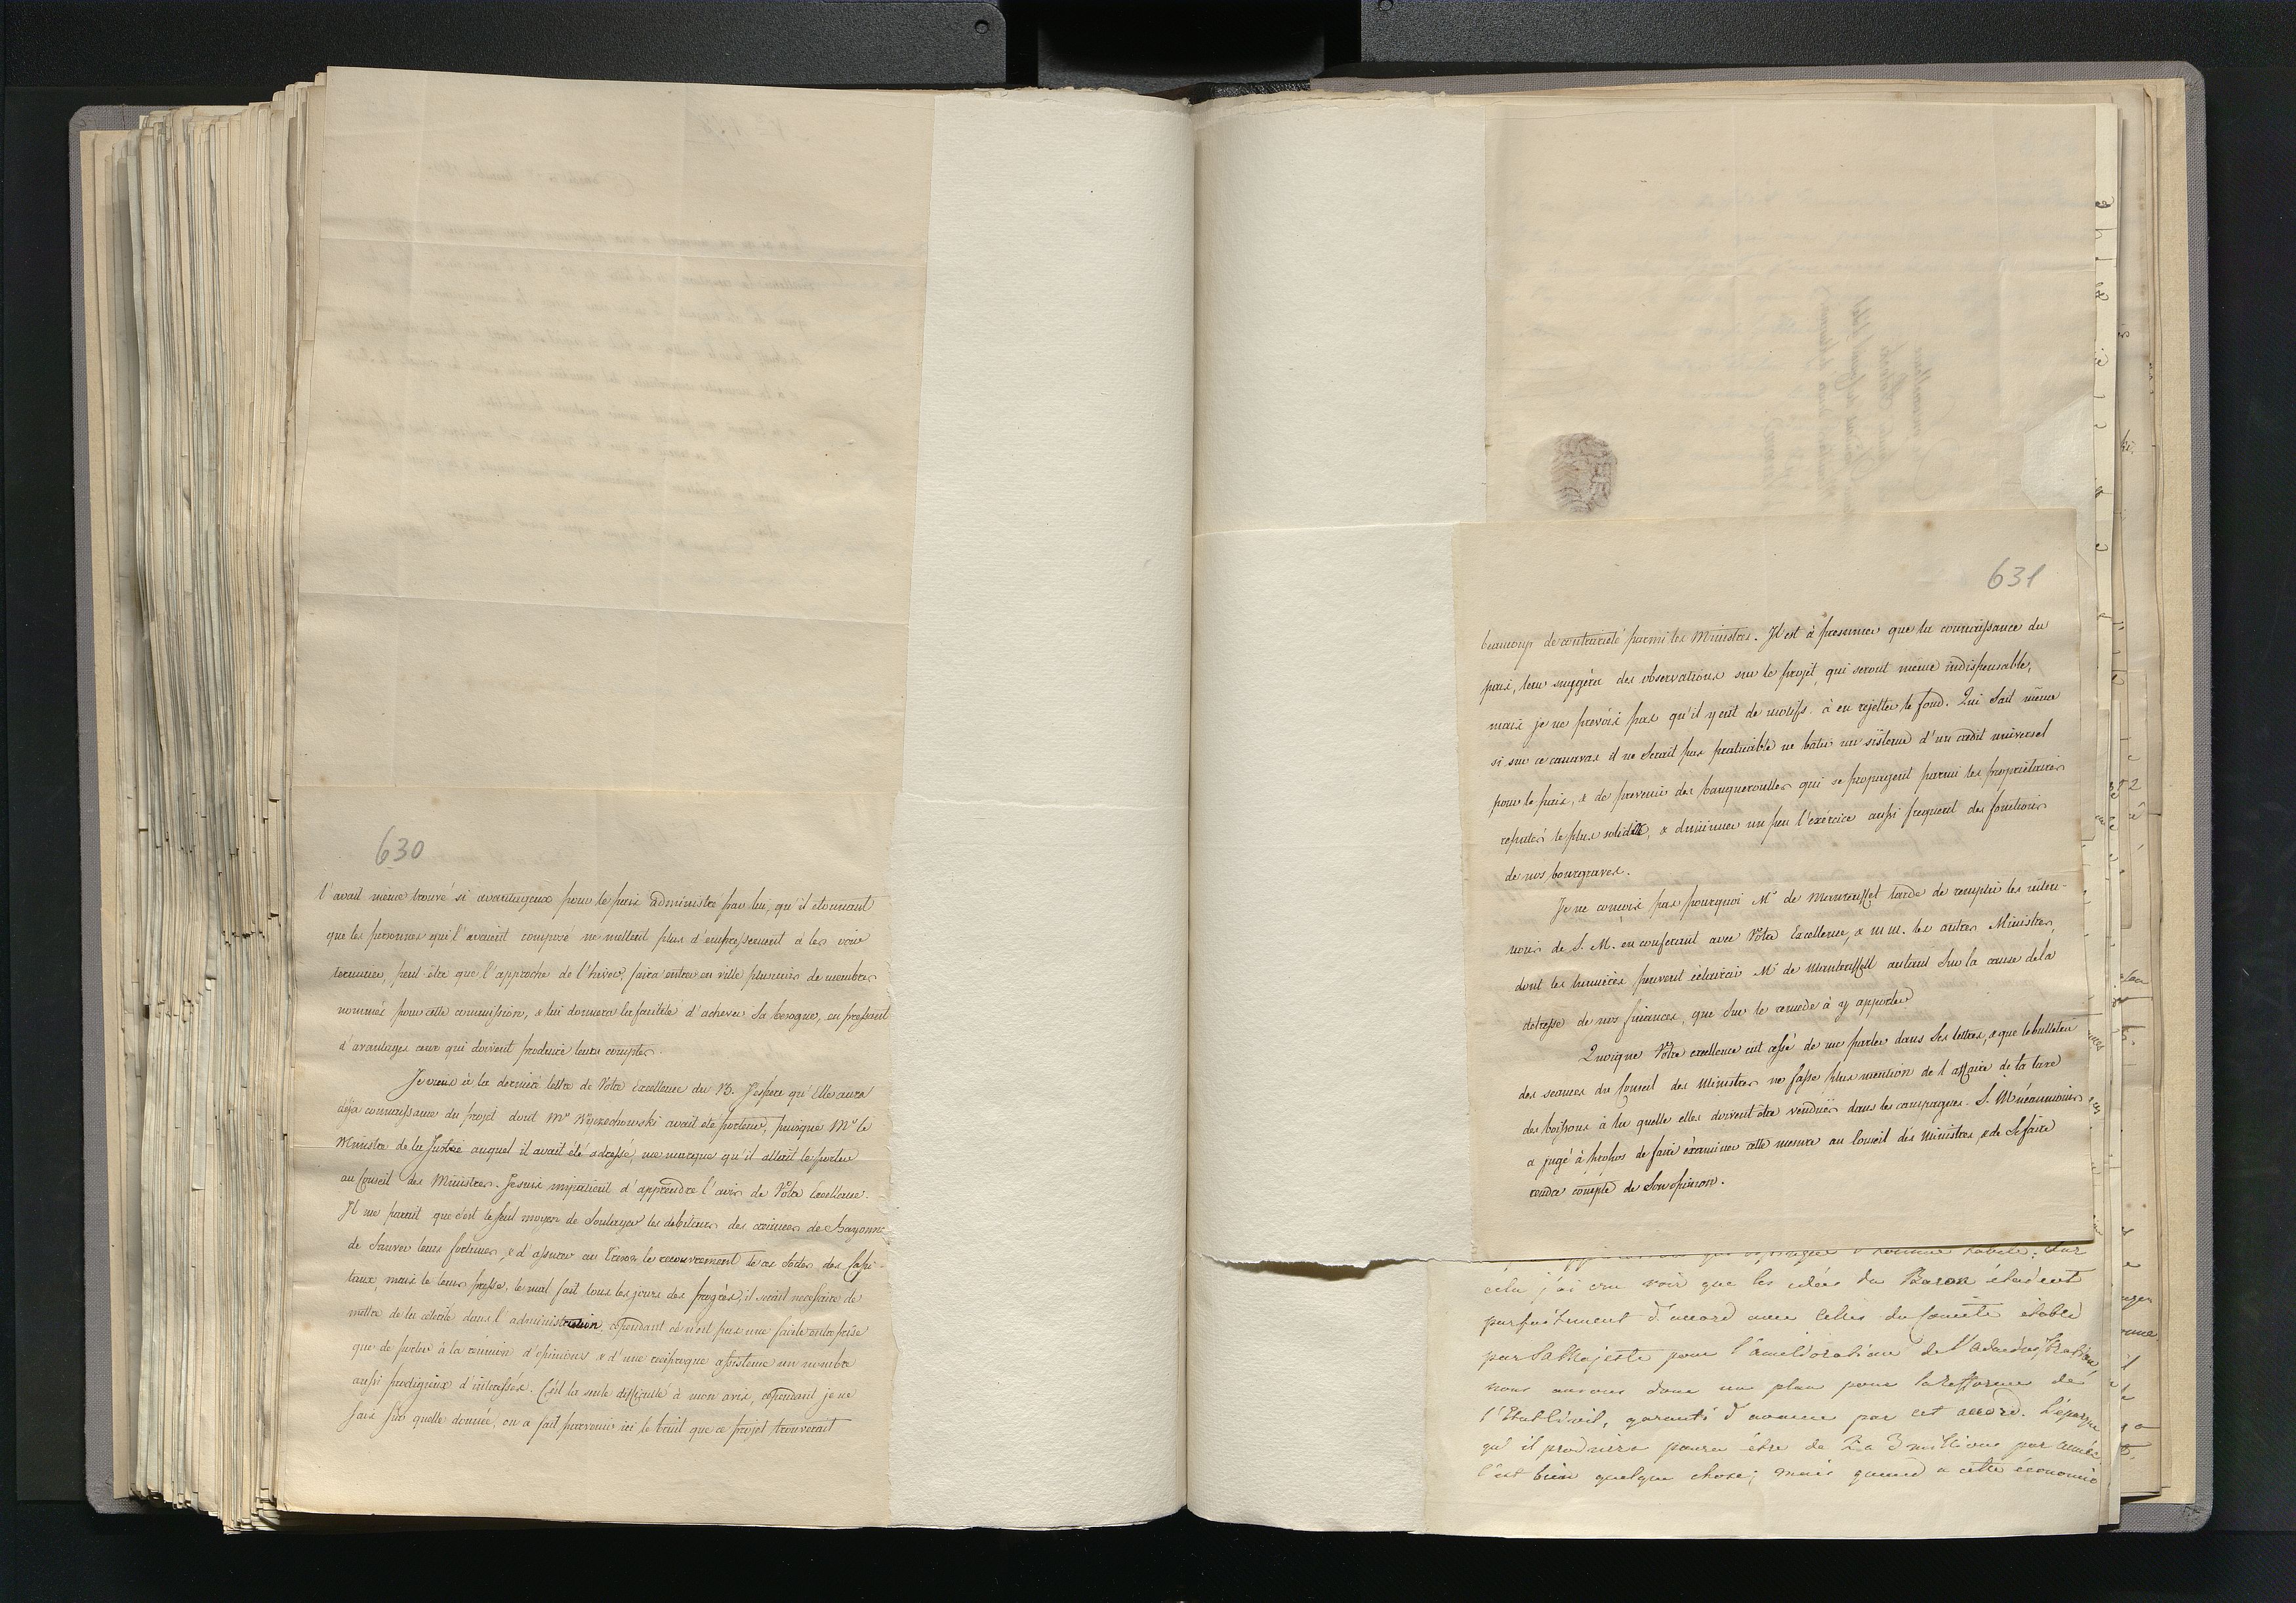 630
l'avait même trouvé si avantageux pour le païs administré par lui, qu'il étonnant
que les personnes qui l'avaient composé ne mettent plus d'empressement à les voir
terminer, peut être que l'approche de l'hiver, faira entrer en ville plusieurs de membres
nommés pour cette commission, & lui donnera les facilité d'achever Sa besogne, en pressant
d'avantages ceux qui doivent produire leurs comptes.
Je viens à la dernière lettre de Votre Excellence du 13. J'espère qu'Elle aura
déja connaissance du projet dont Mr Wyczechowski avait été porteur, puisque Mr le
Ministre de la Justice auquel il avait été adressé, me marque qu'il allait le porter
au Conseil des Ministres. Je suis impatient d'apprendre l'avis de Votre Excellence.
Il me parait que c'est le seul moyen de Soulager les débiteurs des sommes de Bayonne
de Sauver leurs fortunes, & d'assurer au Tresor le recouvrement de ces dettes, des Capi-
taux, mais le tems presse, le mal fait tous les jours des progrès, il serait necessaire de
mettre de la célérité dans l'administration, cependant ce n'est pas une facile entreprise
que de porter à la réunion d'opinions & d'une reciproque assistence un nombre
aussi prodigieux d'intéressés. C'est la seule difficulté à mon avis, cependant je ne
Sais Sur quelle donnée, on a fait parvenir ici le bruit que ce projet trouverait
631
beaucoup de contrarieté parmi les Ministres. Il est à presumer que la connaissance du
païs, leur suggèra des observations sur le projet, qui seront même indispensable,
mais je ne prevois pas qu'il y eut de motifs à en rejetter le fond. Qui Sait même
si sur ce canavas il ne Serait pas praticable de bâtir un sistème d'un credit universel
pour le païs, & de prevenir des banqueroutes qui se propagent parmi les propriétaires
reputés le plus solides, & diminuer un peu l'exercice aussi frequent des fonctions
de nos bourgraves.
Je ne conçois pas pourquoi Mr de Manteuffel tarde de remplir les inten-
tions de S. M. en conferant avec Votre Excellence, & MM. les autres Ministres,
dont les lumières peuvent éclaircir Mr de Manteuffell autant Sur la cause de la
detresse de nos finances, que Sur le remede à y apporter
Quoique Votre excellence eut cessé de me parler dans Ses lettres, & que le bulletin
des seances du Conseil des Ministres ne fasse plus mention de l'affaire de la taxe
des boissons à la quelle elles doivent être vendües dans les campagnes. S. M. néanmoins
a jugé à propos de faire éxaminer cette mesure au Conseil des Ministres, & de Se faire
rendre compte de Son opinion.
cela j'ai cru voir que les idées du Baron étaient
parfaitement d'accord avec celles du Comité établi
par Sa Majesté pour l'amélioration de l'administration
nous aurons donc un plan pour la refforme de
l'Etat Civil, garanti d'avance par cet accord. L'épargne
qu'il produira pourra être de 2 a 3 millions par année
C'est bien quelque chose; mais quand a cette économie